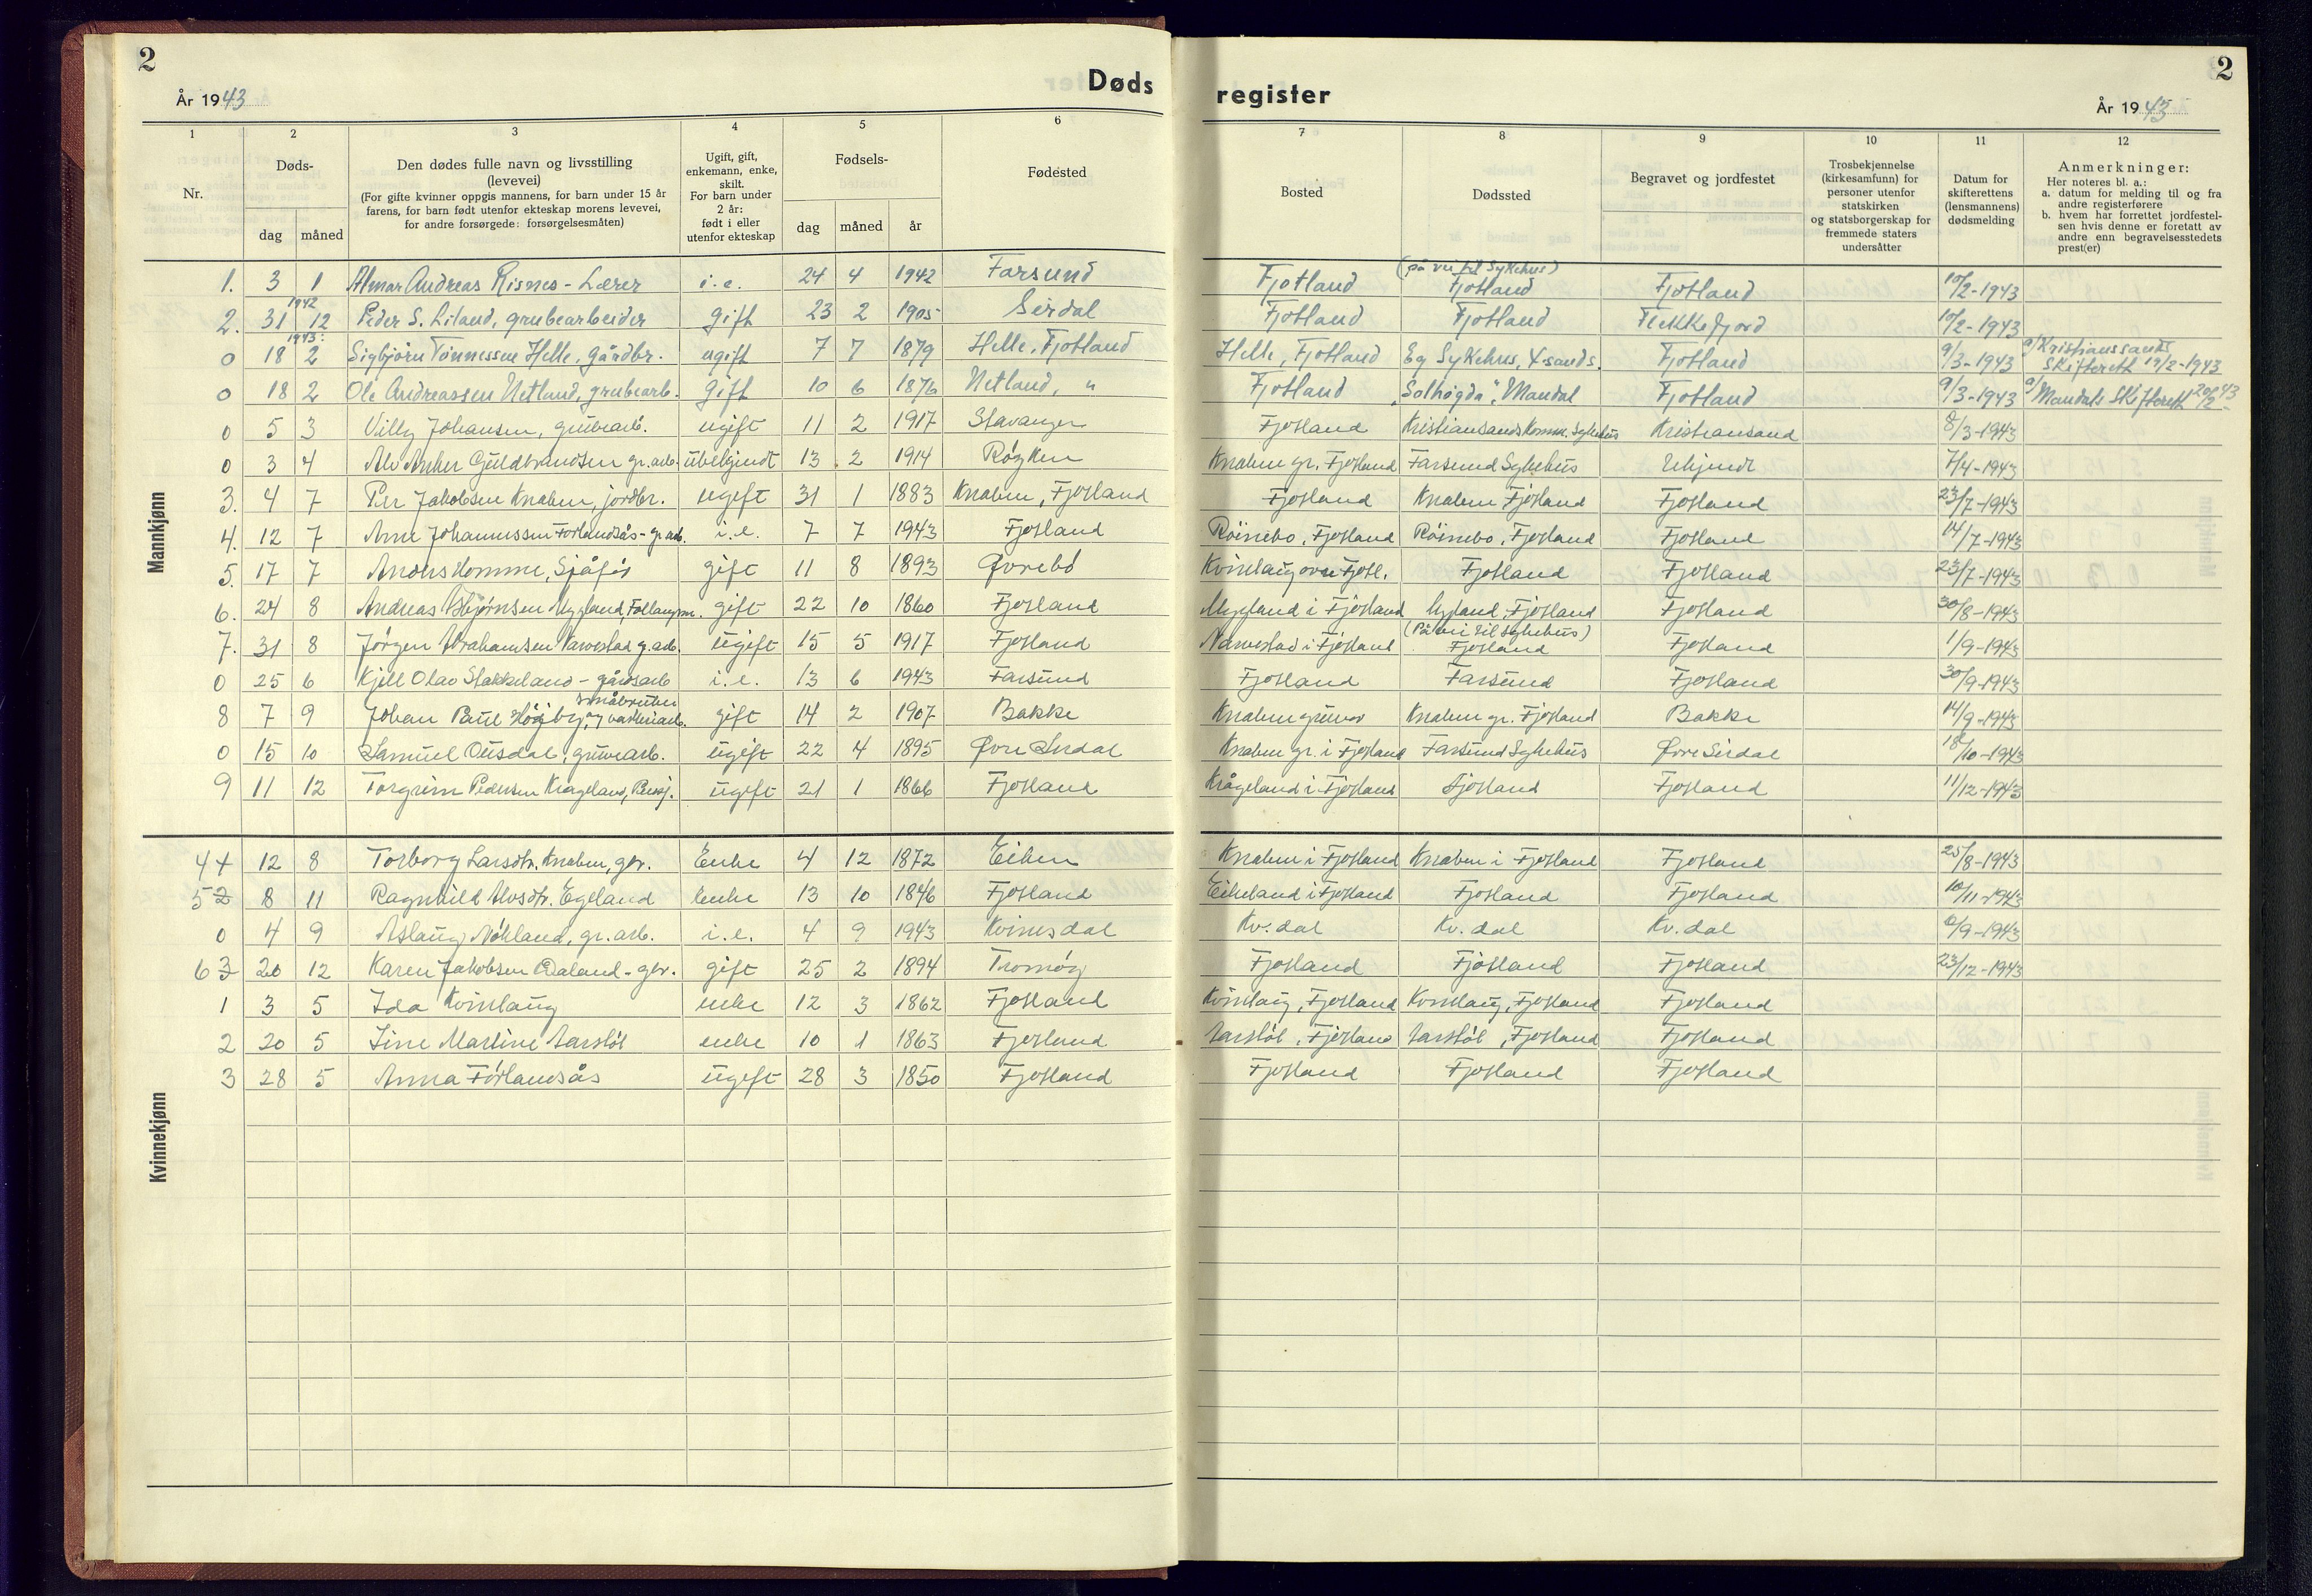 2
År 1943
Døds
register
2
År 1943
1 2 3 4 5 6 7 8 9 10 11 12
Nr.
Døds-
dag måned
Den dødes fulle navn og livsstilling
(levevei)
(For gifte kvinner oppgis mannens, for barn under 15 år
farens, for barn født utenfor ekteskap morens levevei,
for andre forsørgede: forsørgelsesmåten)
Ugift, gift,
enkemann, enke,
skilt.
For barn under
2 år:
født i eller
utenfor ekteskap
Fødsels-
dag måned år
Fødested
Bosted
Dødssted
Begravet og jordfestet
Trosbekjennelse
(kirkesamfunn) for
personer utenfor
statskirken
og statsborgerskap for
fremmede staters
undersåtter
Datum for
skifterettens
(lensmannens)
dødsmelding
Anmerkninger:
Her noteres bl. a.:
a. datum for melding til og fra
andre registerførere
b. hvem har forrettet jordfestel-
sen hvis denne er foretatt av
andre enn begravelsesstedets
prest(er)
Mannkjønn
1. 3 1 Almar Andreas Risnes - Lærer i.e. 24 4 1942 Farsund Fjotland (på vei til Sykehus) Fjotland Fjotland 10/2-1943
2. 31 1942 12 Peder S. Liland, grubearbeider Gift 23 2 1905 Seirdal Fjotland Fjotland Flekkefjord 10/2-1943
0 18 1943: 2 Sigbjörn Tönnessen Helle, Gårdbr. ugift 7 7 1879 Helle, Fjotland Helle, Fjotland Eg Sykehus, X-sands. Fjotland 9/3-1943 a/Kristianssands Skifterett 19/2-1943
0 18 2 Ole Andreassen Netland, grubearb. Gift 10 6 1876 Netland, " Fjotland "Solhøgda", Mandal Fjotland 9/3-1943 a/Mandals Skifterett 20/2-43
0 5 3 Villy Johansen, grubearb. ugift 11 2 1917 Stavanger Fjotland Kristiansands Komm. Sykehus Kristiansand 8/3-1943
0 3 4 Alv Anker Guldbrandsen gr.arb. ubekjendt 13 2 1914 Røyken Knaben gr. Fjotland Farsund Sykehus Ukjendt 7/4-1943
3. 4 7 Per Jakobsen Knaben, jordbr. ugift 31 1 1883 Knaben, Fjotland Fjotland Knaben Fjotland Fjotland 23/7-1943
4. 12 7 Arne Johannessen Førlandsås - gr.arb. i.e. 7 7 1943 Fjotland Röinebo, Fjotland Röinebo, Fjotland Fjotland 14/7-1943
5. 17 7 Anders Homme, Sjåfør gift 11 8 1893 Øvrebö Kvinlaug øvre Fjotl. Fjotland Fjotland 23/7-1943
6. 24 8 Andreas Asbjørnsen Mygland, gift 22 10 1860 Fjotland Mygland i Fjotland Mygland, Fjotland Fjotland 30/8-1943
7. 31 8 Jørgen Abrahamsen Narvestad g.arb. ugift 15 5 1917 Fjotland Narvestad i Fjotland (På vei til Sykehus) Fjotland Fjotland 1/9-1943
0 25 6 Kjell Olav Stakkeland - gårdsarb i.e. 13 6 1943 Farsund Fjotland Farsund Fjotland 30/9-1943
8 7 9 Johan Paul småbruker gift 14 2 1907 Bakke Knaben gruver Knaben gr. Fjotland Bakke 14/9-1943
0 15 10 Samuel Ousdal, gruvearb. ugift 22 4 1895 Øvre Sirdal Knaben gr. i Fjotland Farsund Sykehus Øvre Sirdal 18/10-1943
9 11 12 Torgrim Pedersen Krågeland, Pensj. ugift 21 1 1866 Fjotland Krågeland i Fjotland Fjotland Fjotland 11/12-1943
Kvinnekjønn
4 1 12 8 Torborg Larsdtr. Knaben, gbr. Enke 4 12 1872 Eiken Knaben i Fjotland Knaben i Fjotland Fjotland 25/8-1943
5 2 8 11 Ragnhild Alvsdtr. Egeland Enke 13 10 1846 Fjotland Eikeland i Fjotland Fjotland Fjotland 10/11-1943
0 4 9 Aslaug Nökland, gr.arb. i.e. 4 9 1943 Kvinesdal Kv.dal Kv.dal Kv.dal 6/9-1943
6 3 20 12 Karen Jakobsen Ødaland - gbr. gift 25 2 1894 Tromøy Fjotland Fjotland Fjotland 23/12-1943
1 3 5 Ida Kvinlaug enke 12 3 1862 Fjotland Kvinlaug, Fjotland Kvinlaug, Fjotland Fjotland
2 20 5 Sine Martine Aarstöl enke 10 1 1863 Fjotland Aarstöl, Fjotland Aarstöl, Fjotland Fjotland
3 28 5 Anna Förlandsås ugift 28 3 1850 Fjotland Fjotland Fjotland Fjotland